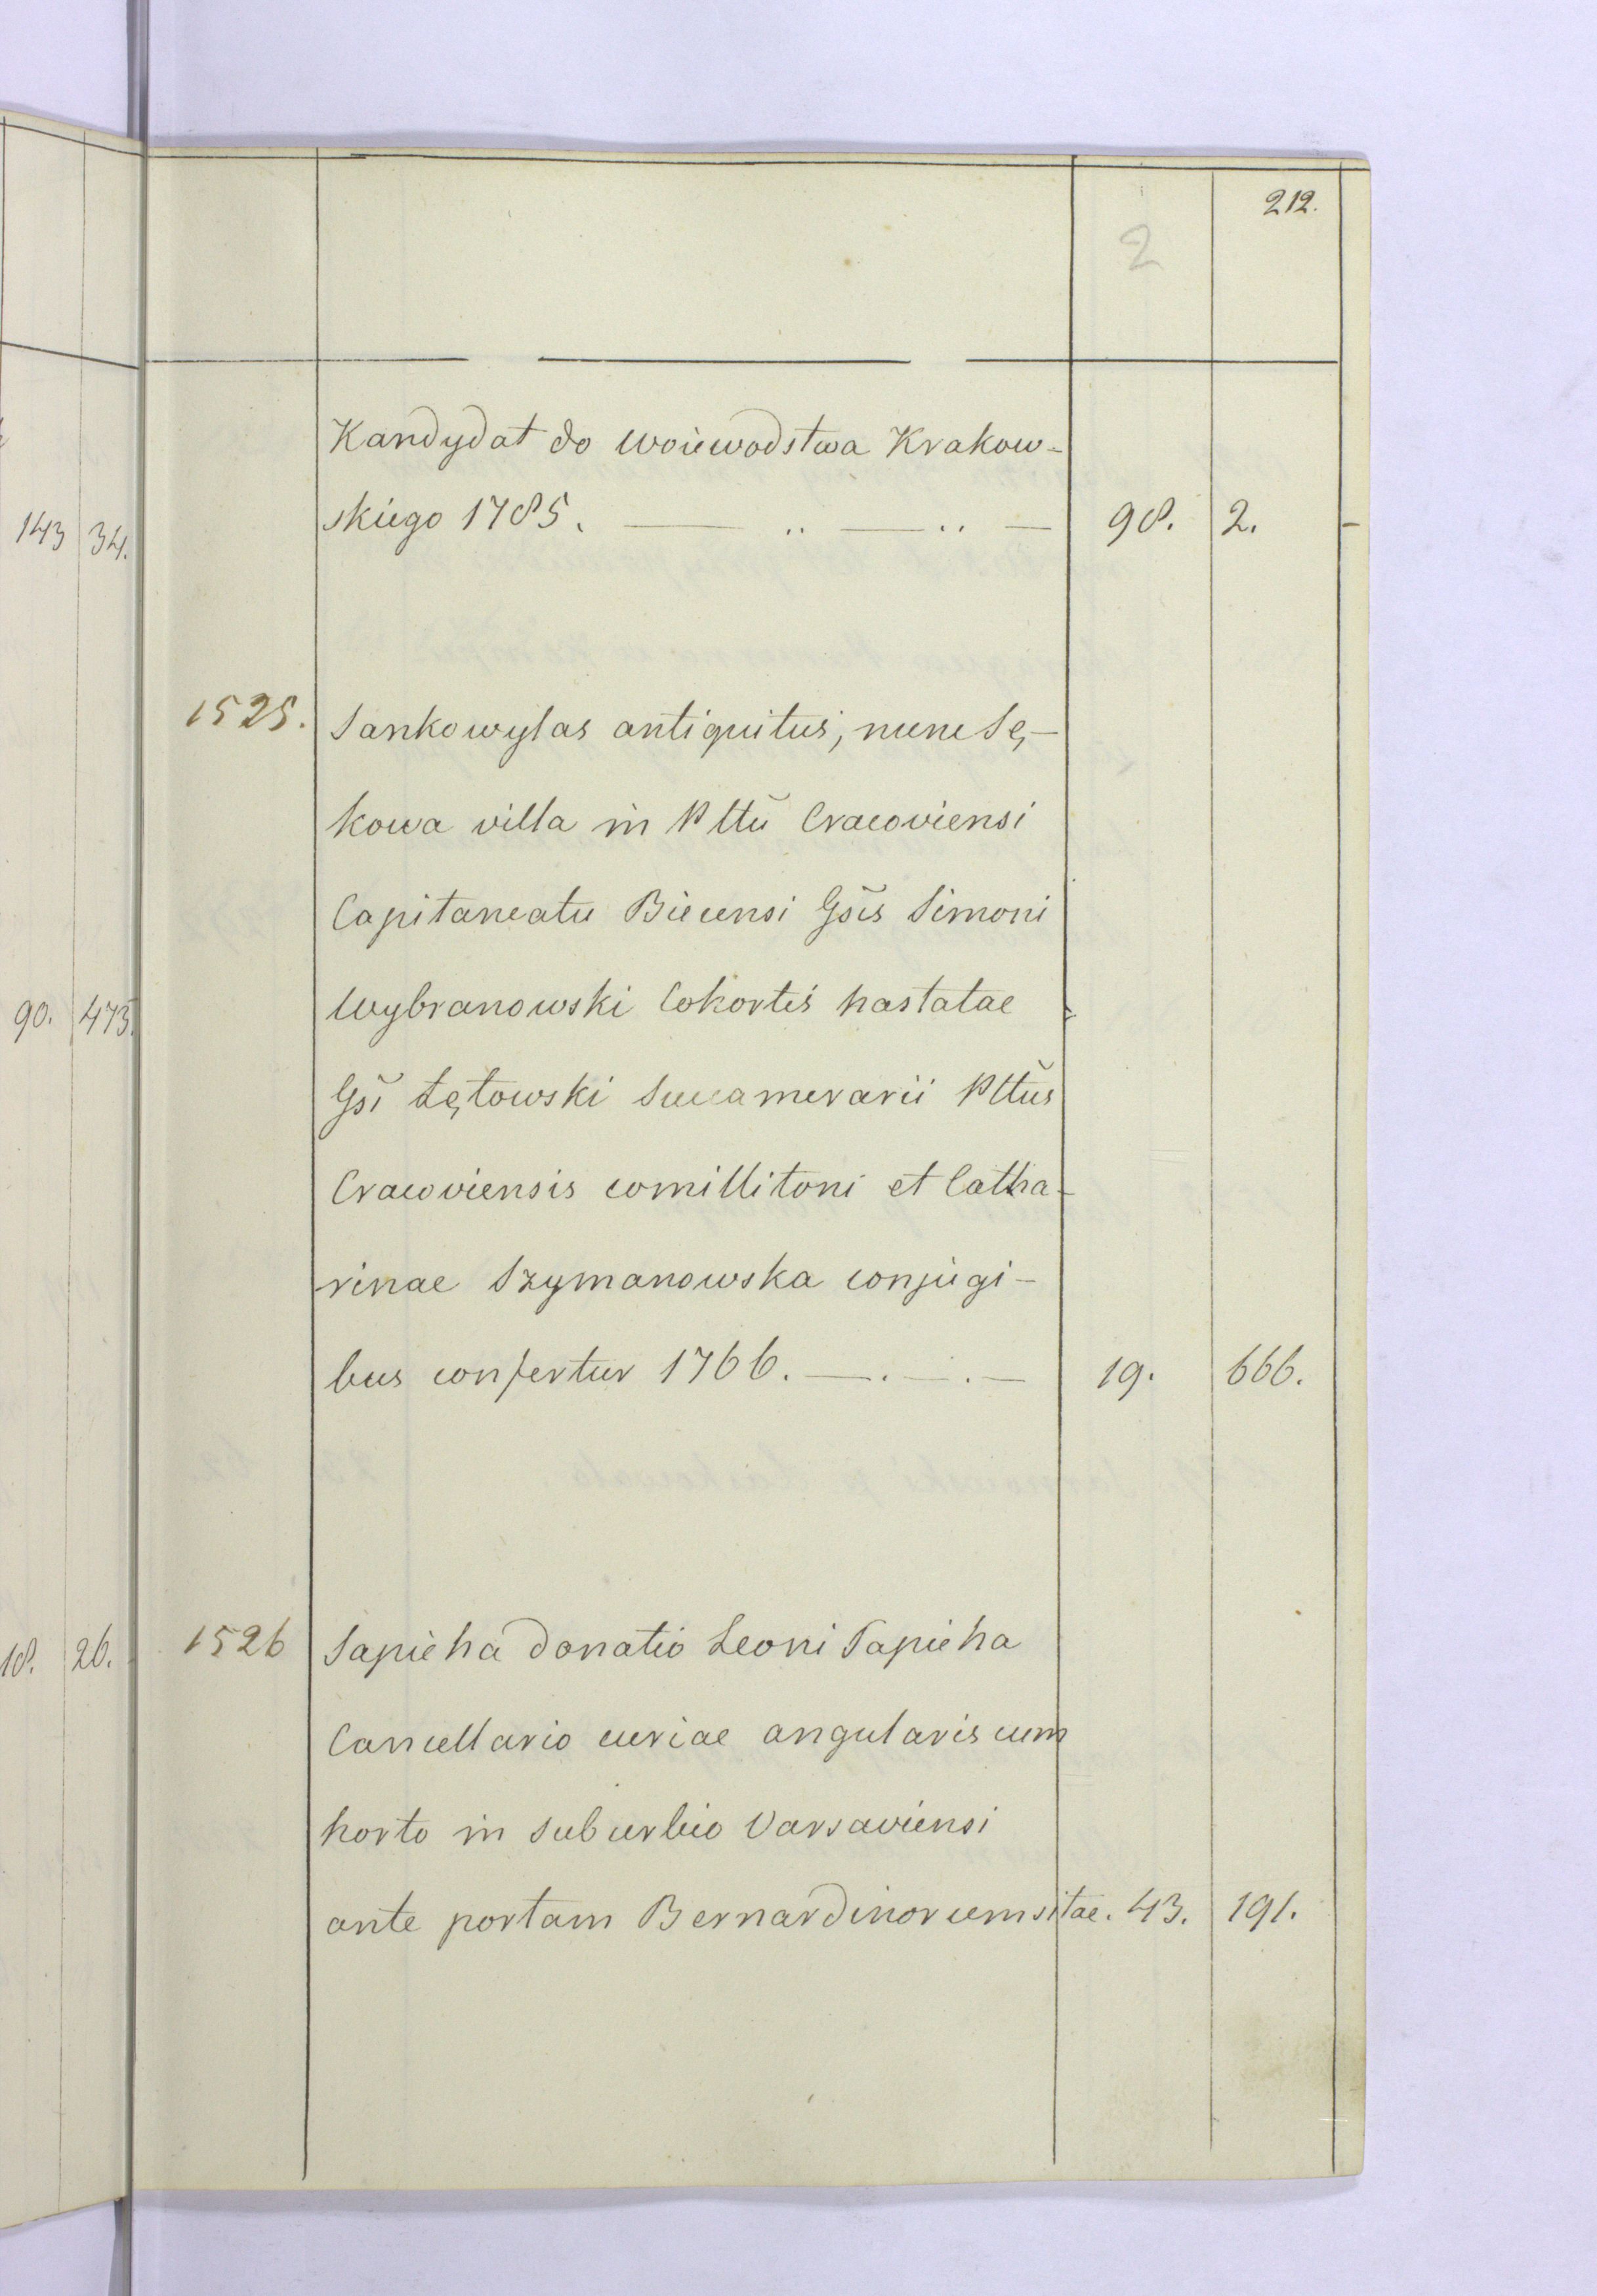 212.
2
Kandydat do woiewodstwa Krakow-
skiego 1785. 98. 2.
143 34.
1525. Sankowylas antiquitus, nunc Sę-
kowa villa in Pttũ Cracoviensi
Capitaneatu Biecensi Gsis Simoni
Wybranowski Cohortis hastatae
90. 473.
Gsi Łętowski Succamerarii Pttũs
Cracoviensis comillitoni et Catha-
rinae Szymanowska conjugi-
bus confertur 1766. 19. 666.
18. 26.
1526 Sapieha donatio Leoni Sapieha
Cancellario curiae angularis cum
horto in suburbio Varsaviensi
ante portam Bernardinorum sitae. 43. 191.